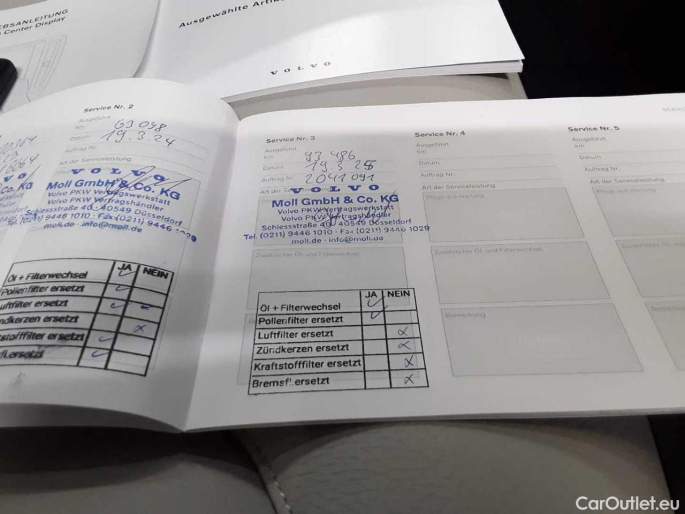 EBSANLEITUNG
Center Display
Ausgewählte Artik
VOLVO
Service Nr. 2
Ausgeführt
km 69 098
Datum 19.3.24
Auftrag Nr.
Art der Serviceleistung
VOLVO
Moll GmbH & Co. KG
Volvo PKW Vertragswerkstatt
Volvo PKW Vertragshändler
Schiessstraße 40 · 40549 Düsseldorf
Tel. (0211) 9446 1010 · Fax (0211) 9446
moll.de · info@moll.de
JA NEIN
Öl + Filterwechsel
Pollenfilter ersetzt
uftfilter ersetzt
ndkerzen ersetzt
stofffilter ersetzt
ersetzt
Service Nr. 3
Ausgeführt
km 93 486
Datum 19.3.25
Auftrag Nr. 2041 091
Art der Se
VOLVO
Moll GmbH & Co. KG
Volvo PKW Vertragswerkstatt
Volvo PKW Vertragshändler
Schiessstraße 40 · 40549 Düsseldorf
Tel. (0211) 9446 1010 · Fax (0211) 9446 1029
moll.de · info@moll.de
Zusätzlicher Öl und Filterwechsel
JA NEIN
Öl + Filterwechsel
Pollenfilter ersetzt
Luftfilter ersetzt
Zündkerzen ersetzt
Kraftstofffilter ersetzt
Bremsfl. ersetzt
Service Nr. 4
Ausgeführt
km
Datum
Auftrag Nr.
Art der Serviceleistung
Zusätzlicher Öl und Filterwechsel
Bemerkung
Service Nr. 5
Ausgeführt
km
Datum
Auftrag Nr.
Art der Serviceleistung
Bemerkung
CarOutlet.eu